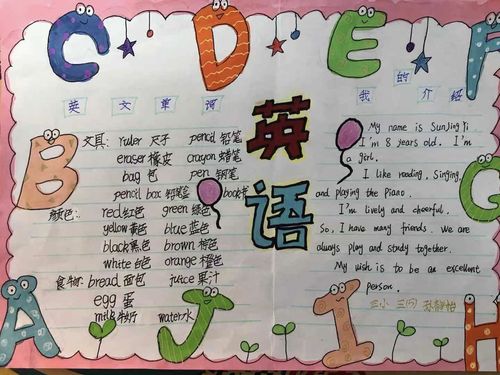 C D E F
英文单词
我的介绍
B
英语
G
文具: ruler 尺子 pencil 铅笔
eraser 橡皮 crayon 蜡笔
bag 包 pen 钢笔
pencil box 铅笔盒 book 书
颜色: red 红色 green 绿色
yellow 黄色 blue 蓝色
black 黑色 brown 棕色
white 白色 orange 橙色
食物: bread 面包 juice 果汁
egg 蛋
milk 牛奶 water 水
My name is SunJingYi
I'm 8 years old. I'm
a girl.
I like reading, Singing,
and playing the Piano.
I'm lively and cheerful.
So, I have many friends. We are
always play and study together.
My wish is to be an excellent
person.
三小 三(7) 孙静怡
A J I H